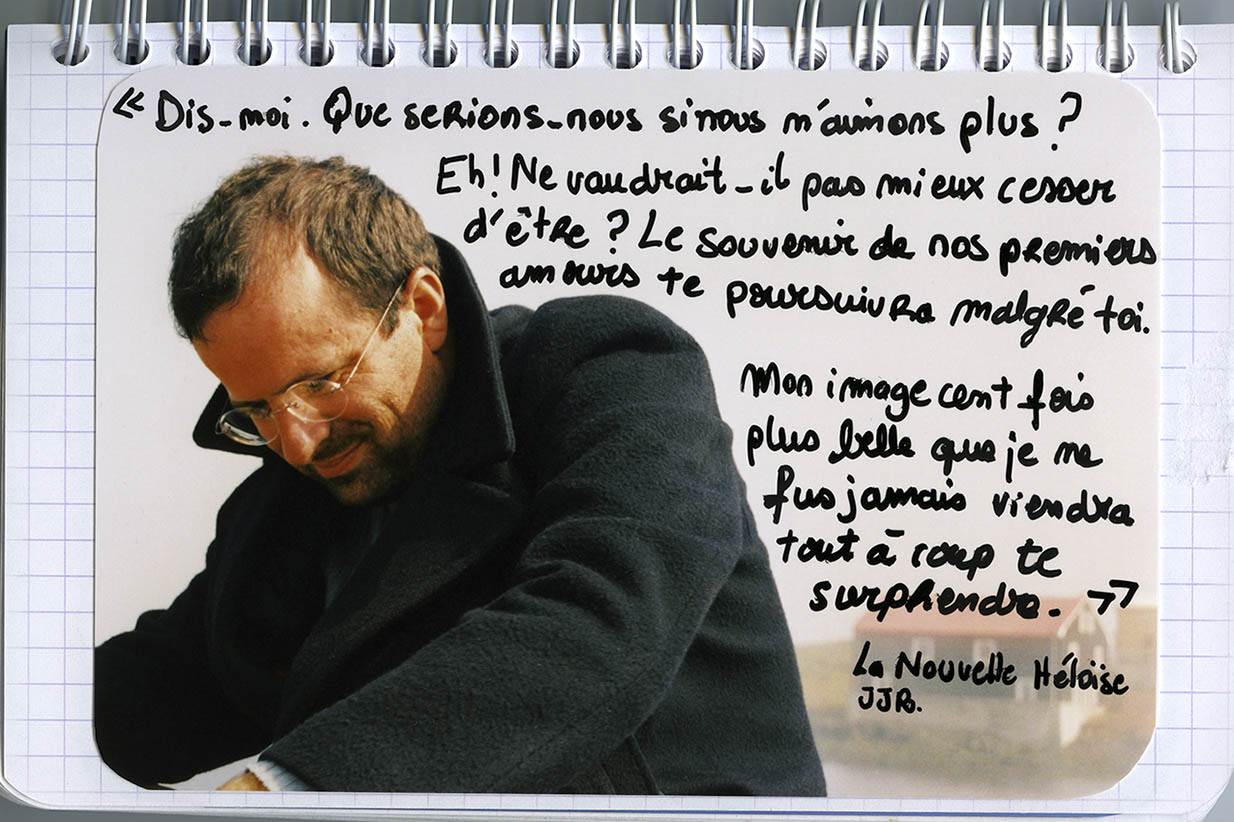 « Dis-moi. Que serions-nous si nous n'aimions plus ?
Eh! Ne vaudrait-il pas mieux cesser
d'être ? Le souvenir de nos premiers
amours te poursuivra malgré toi.
Mon image cent fois
plus belle que je ne
fus jamais viendra
tout à coup te
surprendre. »
La Nouvelle Héloïse
JJR.